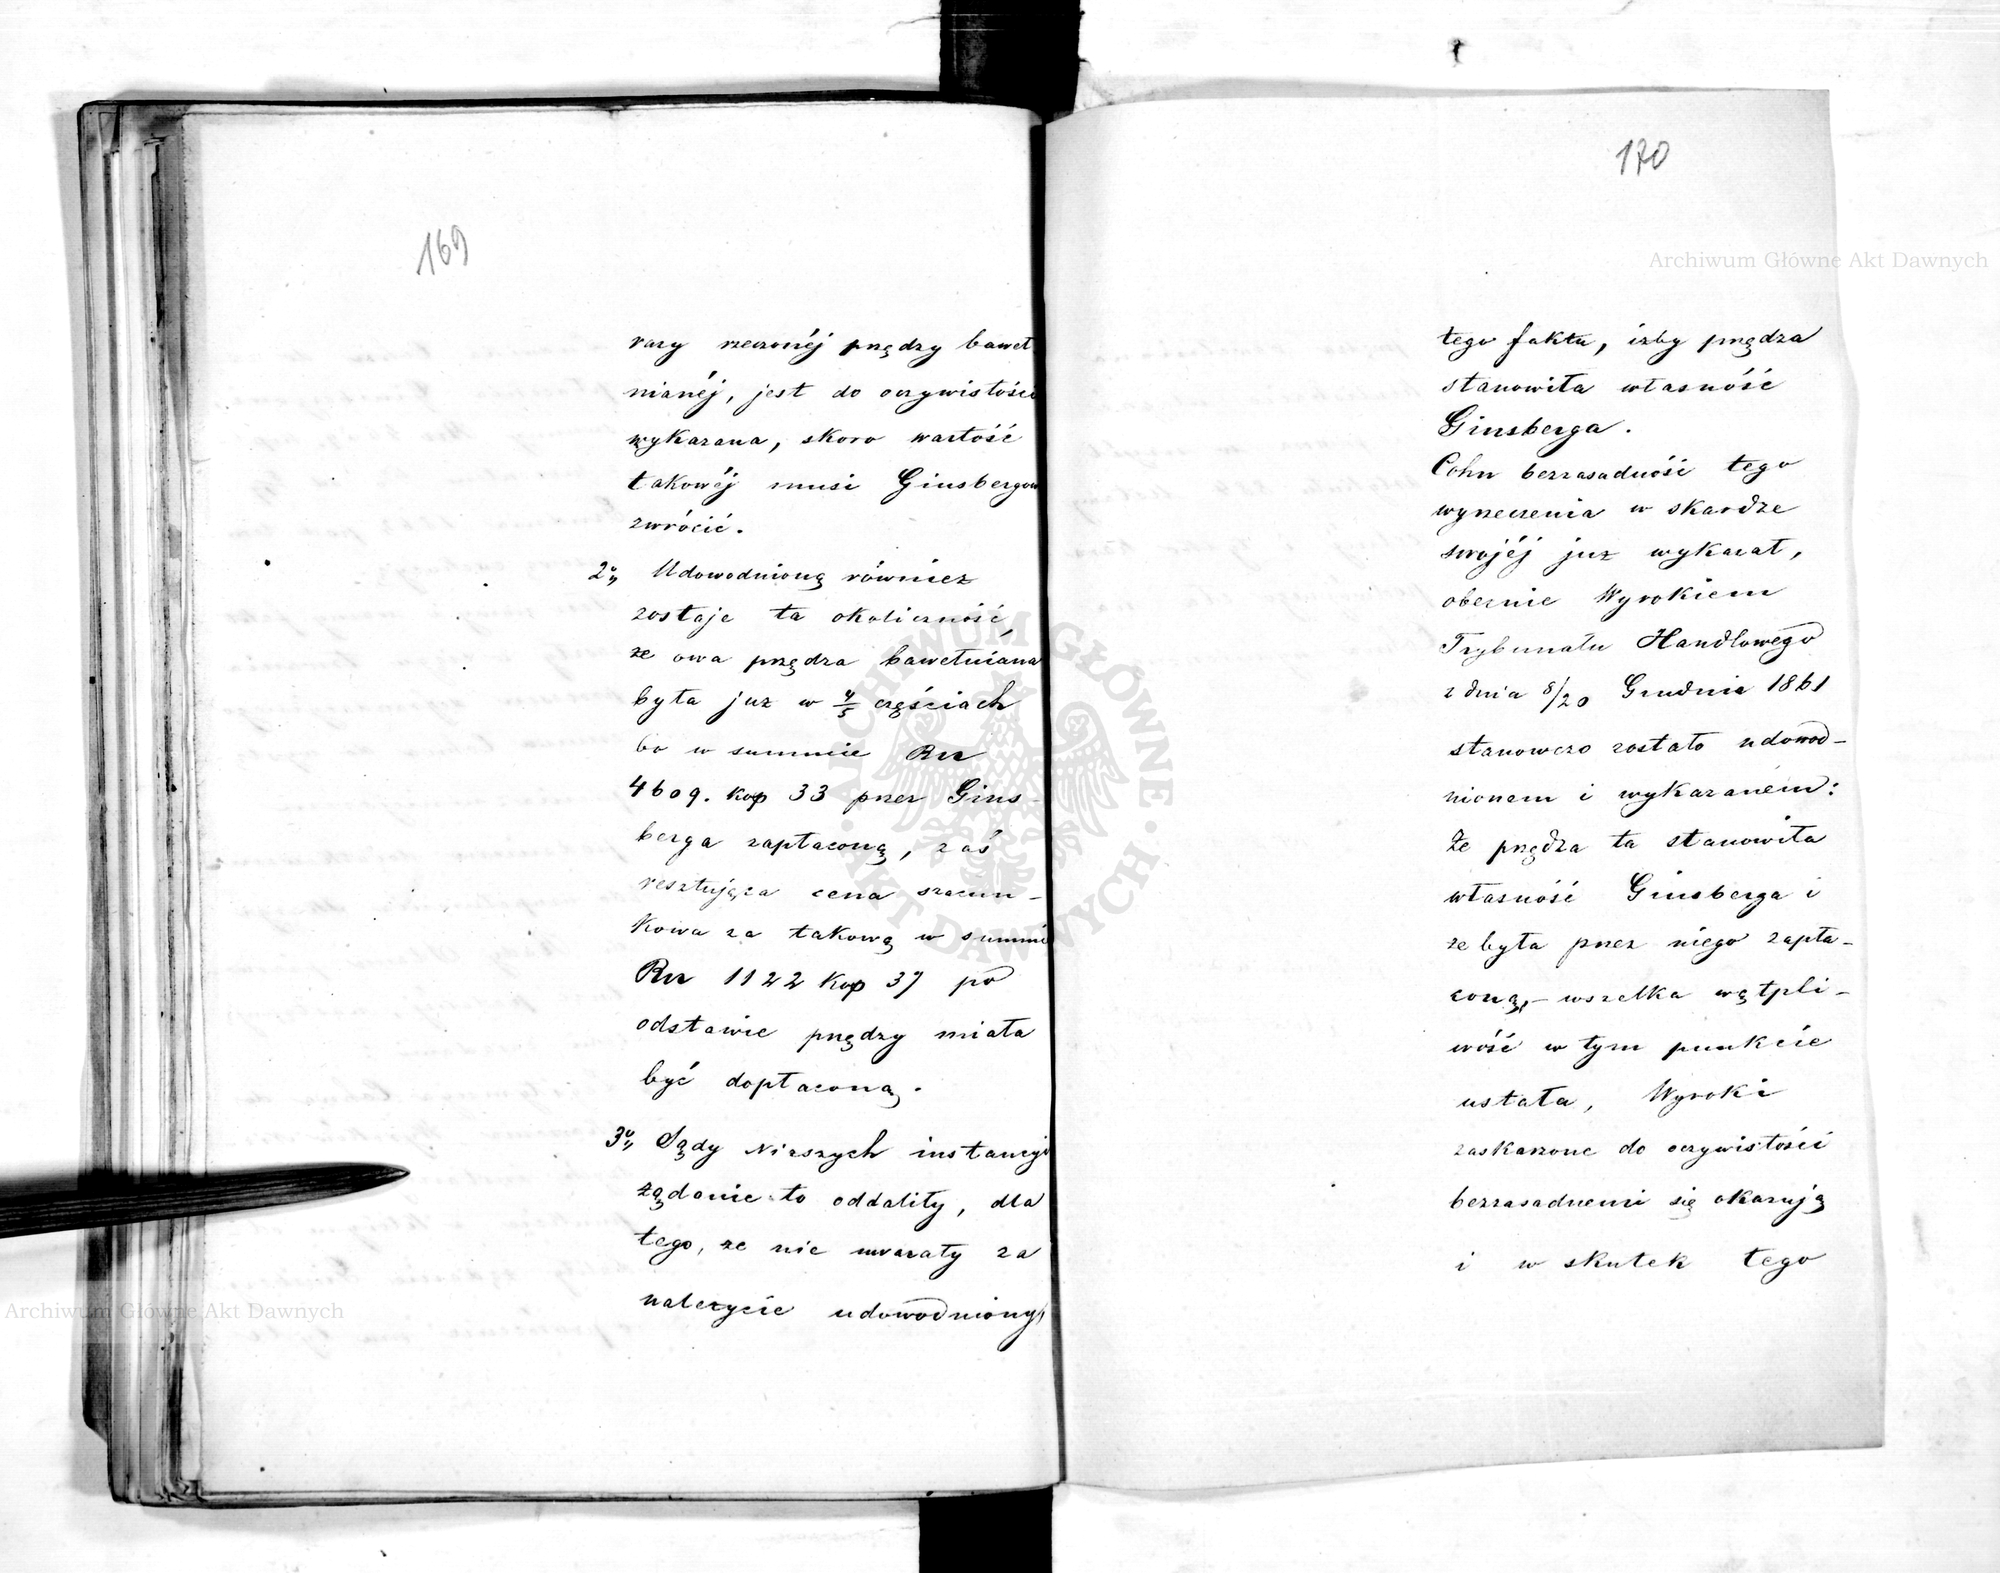 169
razy rzeczonéj przędzy baweł
nianéj, jest do oczywistości
wykazana, skoro wartość
takowéj musi Ginsbergow
zwrócić.
2o,, Udowodnioną również
zostaje ta okoliczność,
że owa przędza bawełniana
była już w 4/5 częściach
bo w summie Rsr
4609. kop 33 przez Gins-
berga zapłaconą, zaś
resztująca cena szacun-
kowa za takową w summie
Rsr 1122 kop 37 po
odstawie przędzy miała
być dopłaconą.
3o,, Sądy Niższych instancyi
żądanie to oddaliły, dla
tego, że nie uważały za
należycie udowodniony,
170
tego faktu, iżby przędza
stanowiła własność
Ginsberga.
Cohn bezzasadność tego
wyrzeczenia w skardze
swojéj już wykazał,
obecnie Wyrokiem
Trybunału Handlowego
z dnia 8/20 Grudnia 1861
stanowczo zostało udowod-
nionem i wykazaném:
Że przędza ta stanowiła
własność Ginsberga i
że była przez niego zapła-
coną,- wszelka wątpli-
wość w tym punkcie
ustała, Wyroki
zaskarżone do oczywistości
bezzasadnemi się okazują
i w skutek tego
Archiwum Główne Akt Dawnych
Archiwum Główne Akt Dawnych
ARCHIWUM GŁÓWNE AKT DAWNYCH